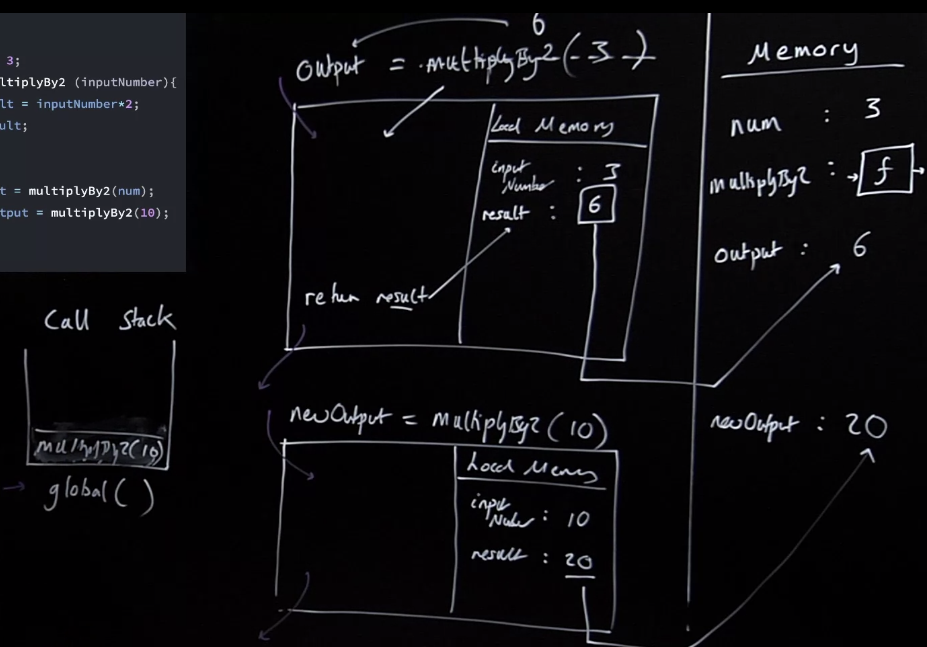 3;
ltiplyBy2 (inputNumber){
lt = inputNumber*2;
ult;
t = multiplyBy2(num);
tput = multiplyBy2(10);
Call Stack
multiplyBy2(10)
global( )
6
output = multiplyBy2(-3-)
Local Memory
input
Number : 3
result : 6
return result
newOutput = multiplyBy2(10)
Local Memory
input
Number : 10
result : 20
Memory
num : 3
multiplyBy2 : f
output : 6
newOutput : 20